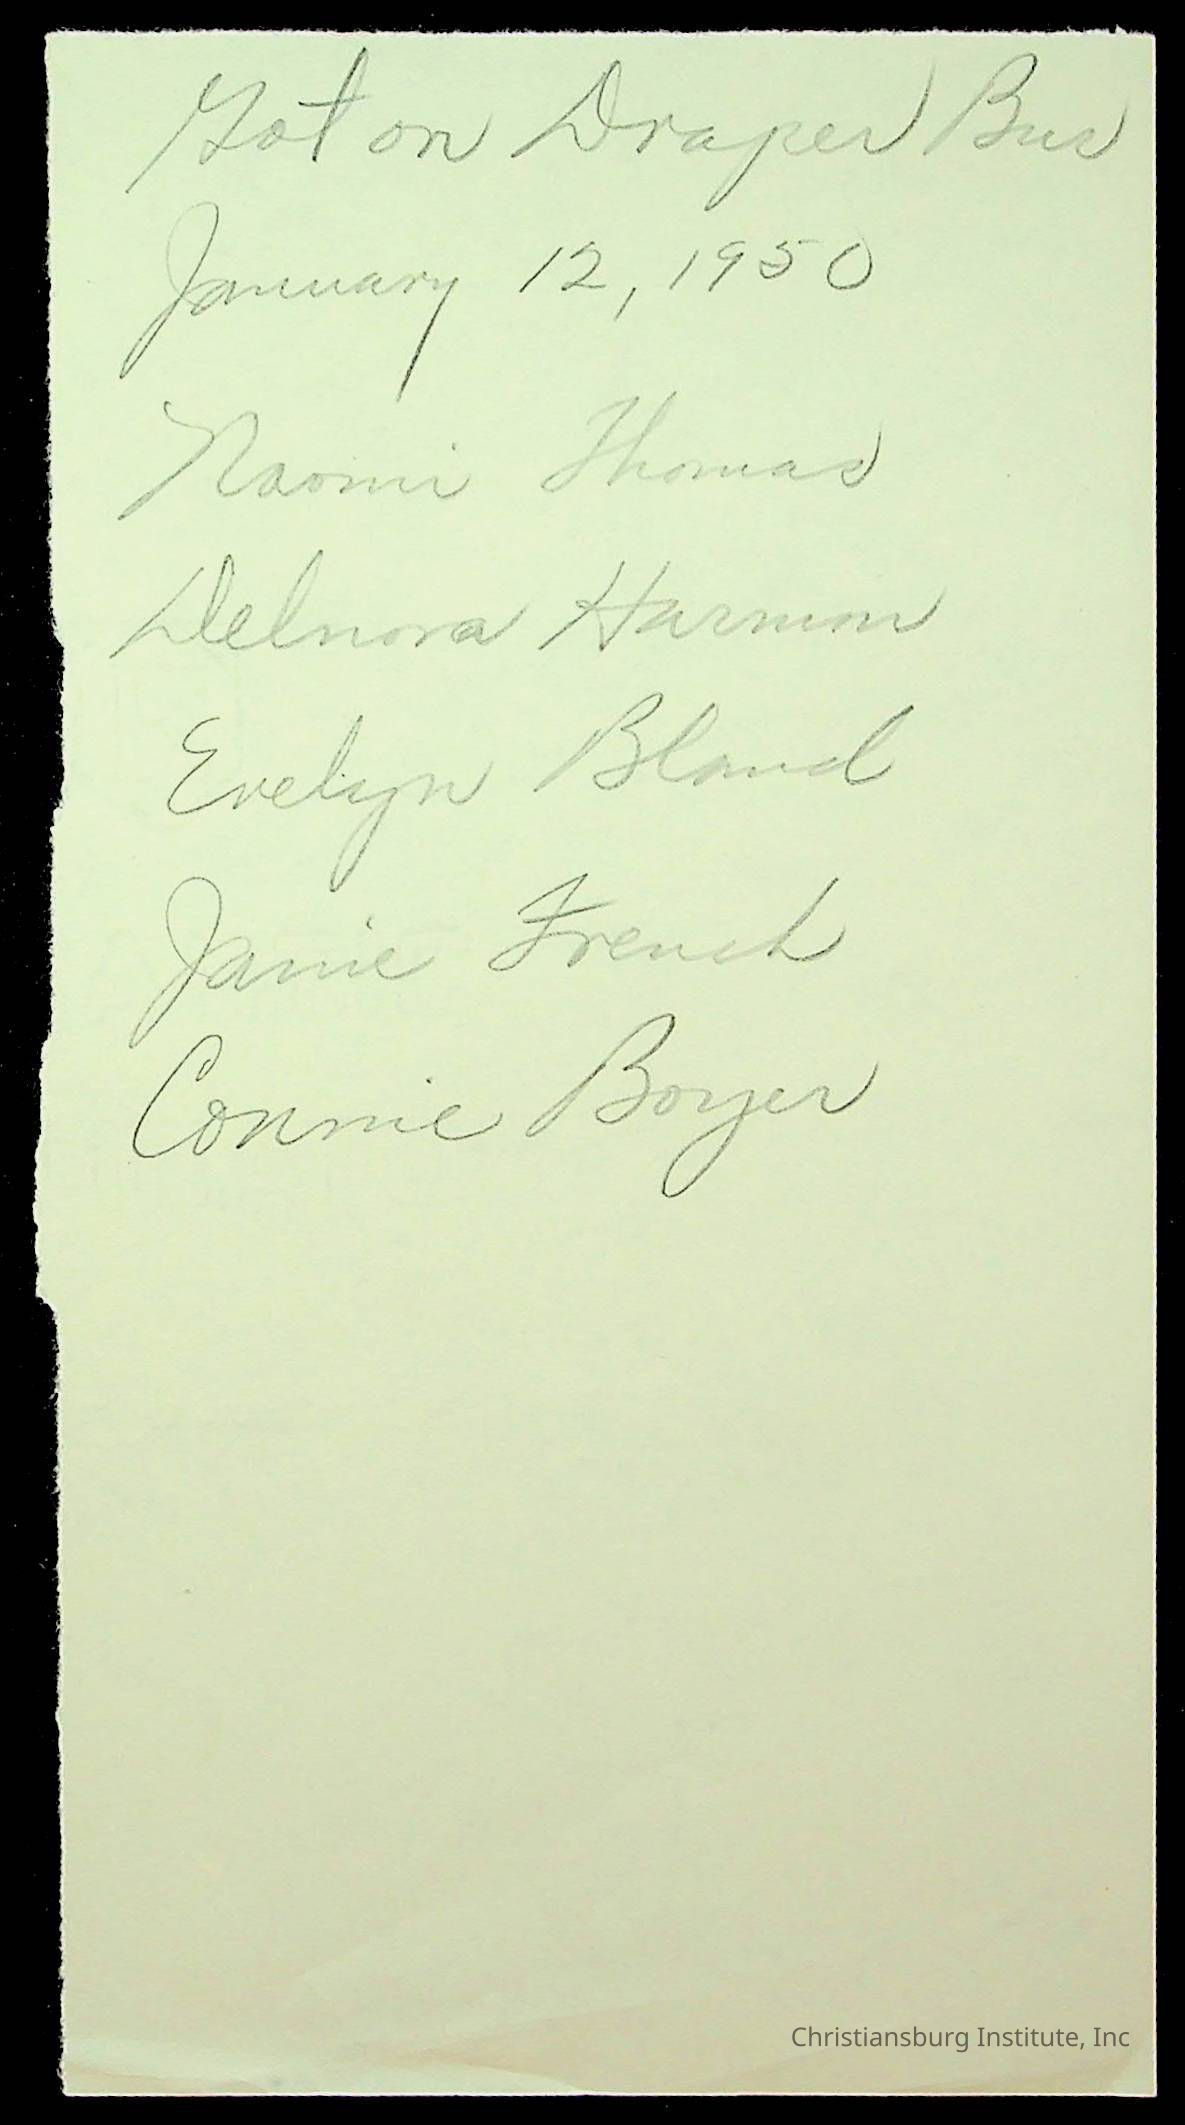 Got on Draper Bus
January 12, 1950
Naomi Thomas
Delnora Harmon
Evelyn Bland
Janie French
Connie Boyer
Christiansburg Institute, Inc